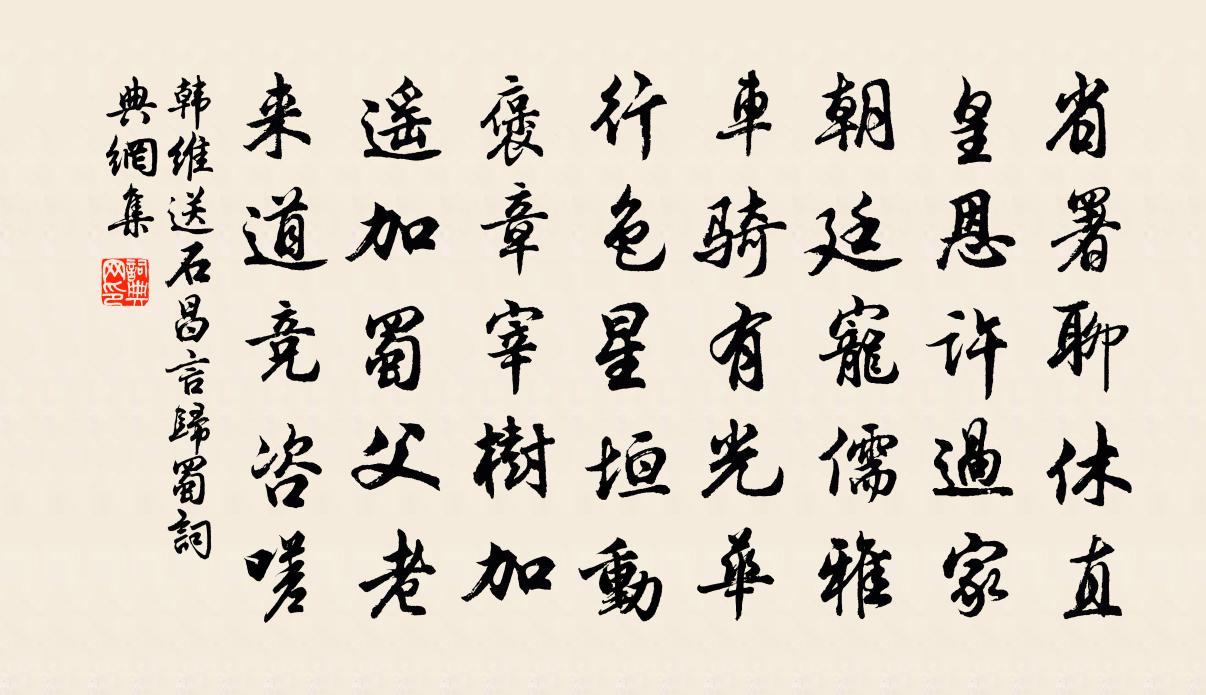 省署聊休直
皇恩許過家
朝廷寵儒雅
車騎有光華
行色星垣動
褒章宰樹加
遥加蜀父老
来道竞咨嗟
韩維送石昌言歸蜀詞
典網集
詞典网印